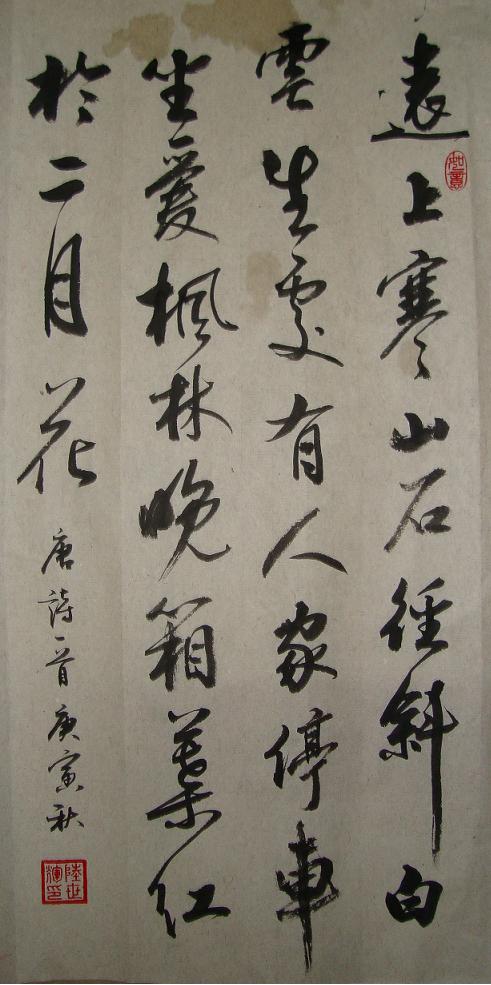 遠上寒山石徑斜白
如意
雲生處有人家停車
坐愛楓林晚箱葉紅
於二月花
唐詩一首庚寅秋
陸世輝印